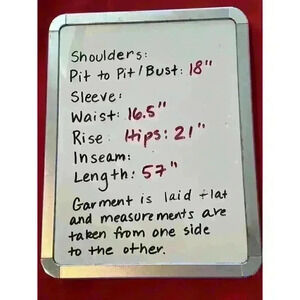 Shoulders:
Pit to Pit/Bust: 18"
Sleeve:
Waist: 16.5"
Rise: Hips: 21"
Inseam:
Length: 57"
Garment is laid flat
and measurements are
taken from one side
to the other.